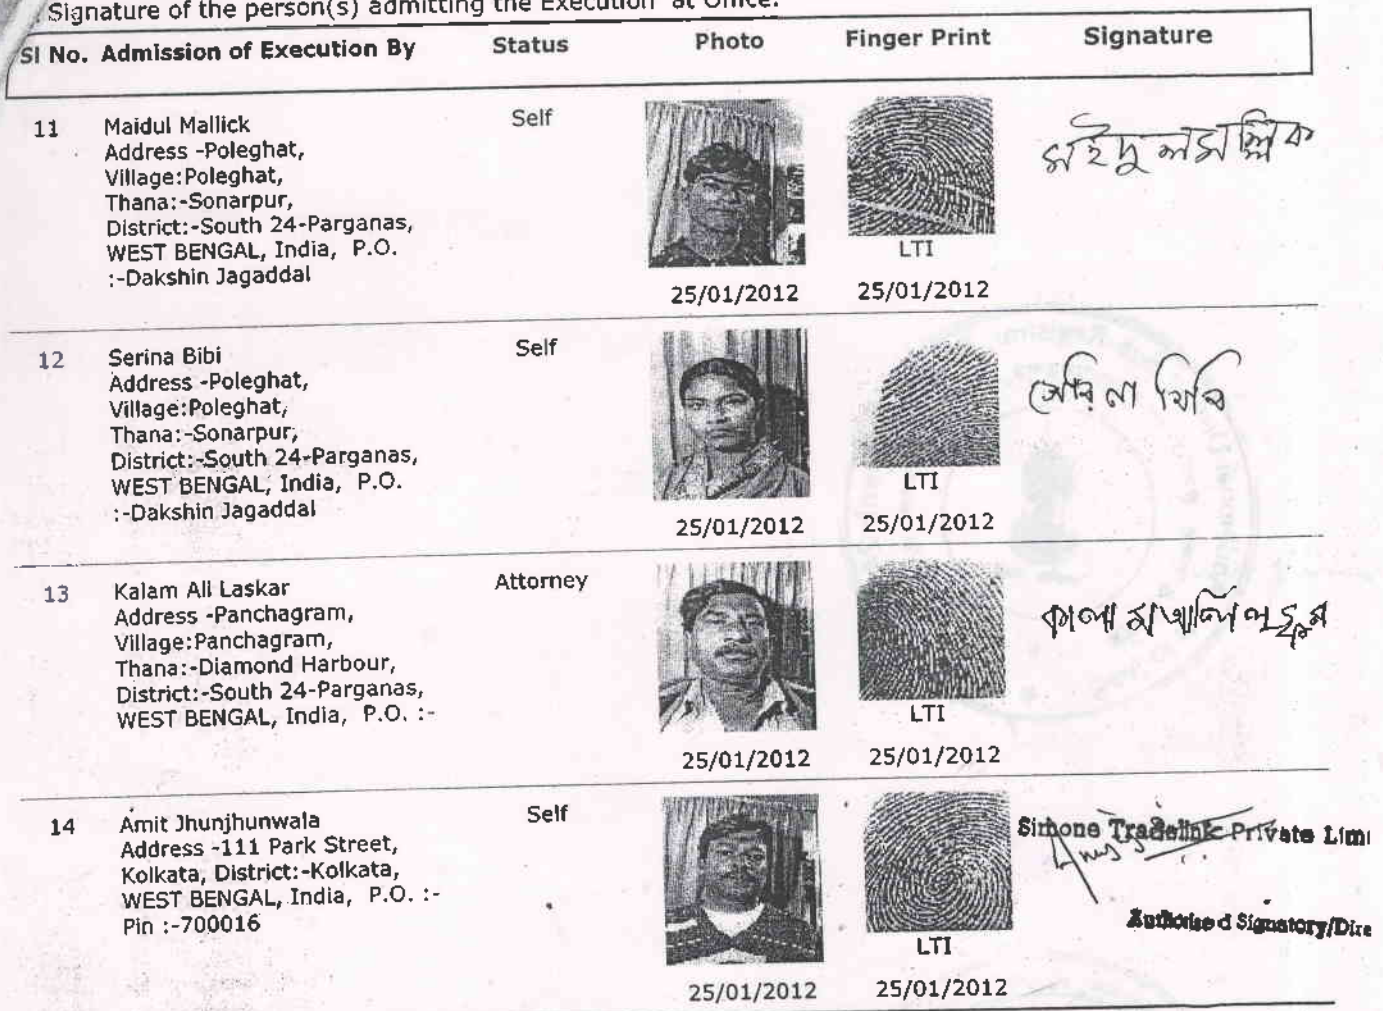 Signature of the person(s) admitting the Execution at Office.
Sl No. Admission of Execution By Status Photo Finger Print Signature
11 Maidul Mallick Self
Address -Poleghat,
Village:Poleghat,
Thana:-Sonarpur,
District:-South 24-Parganas,
WEST BENGAL, India, P.O.
:-Dakshin Jagaddal
মইদুল মল্লিক
LTI
25/01/2012 25/01/2012
12 Serina Bibi Self
Address -Poleghat,
Village:Poleghat,
Thana:-Sonarpur,
District:-South 24-Parganas,
WEST BENGAL, India, P.O.
:-Dakshin Jagaddal
সেরিনা বিবি
LTI
25/01/2012 25/01/2012
13 Kalam Ali Laskar Attorney
Address -Panchagram,
Village:Panchagram,
Thana:-Diamond Harbour,
District:-South 24-Parganas,
WEST BENGAL, India, P.O. :-
কালাম আলি লস্কর
LTI
25/01/2012 25/01/2012
14 Amit Jhunjhunwala Self
Address -111 Park Street,
Kolkata, District:-Kolkata,
WEST BENGAL, India, P.O. :-
Pin :-700016
Simone Tradelink Private Limi
Authorised Signatory/Dire
LTI
25/01/2012 25/01/2012